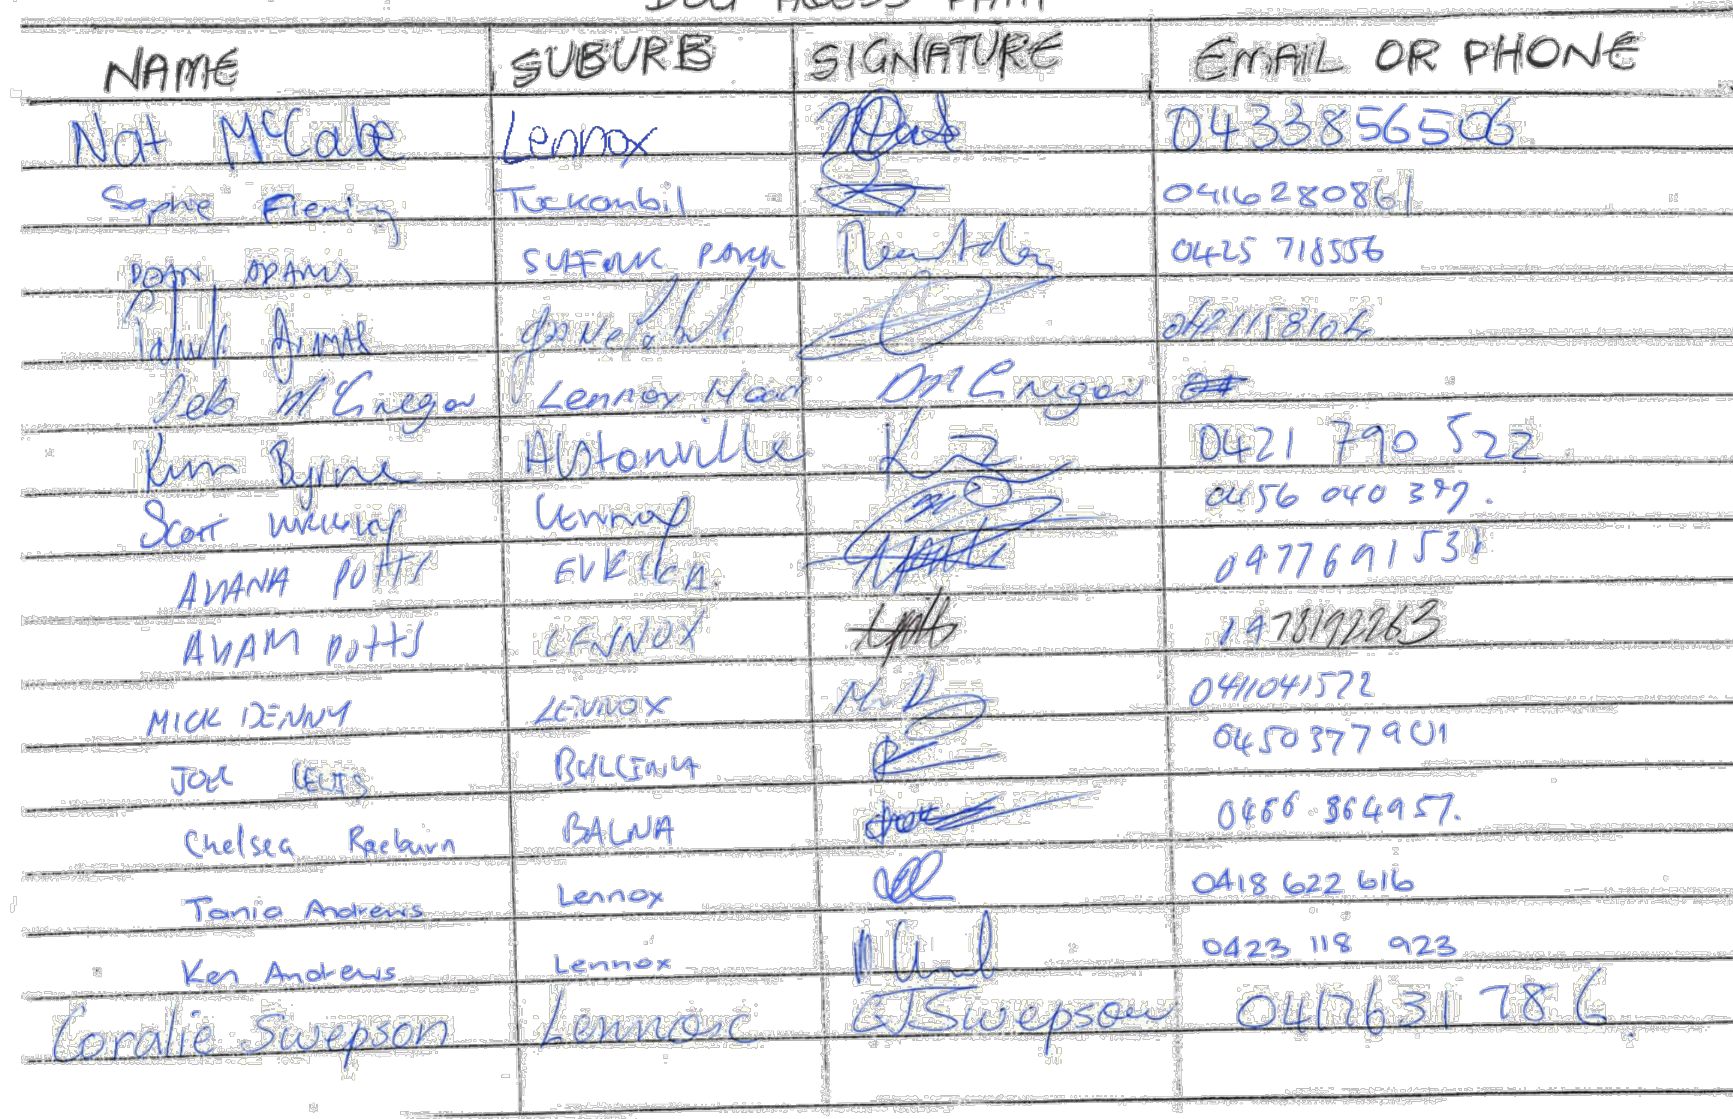 DOG ACCESS PATH
NAME SUBURB SIGNATURE EMAIL OR PHONE
Nat McCabe Lennox 0433856506
Sophie Fleming Tuckombil 0416280861
ADAMS SUFFOLK PARK 0425 718556
0421158104
Deb McGregor Lennox Head DMcGregor
Kim Byrne Alstonville 0421 790 522
Scott Lennox 0456 040 397.
POTTS 0477691531
POTTS LENNOX 1478192263
MICK DENNY LENNOX 0411041572
0450377901
Chelsea Raeburn BALNA 0466 864957.
Tania Andrews Lennox 0418 622 616
Ken Andrews Lennox 0423 118 923
Coralie Swepson Lennox CJSwepson 0417631 786